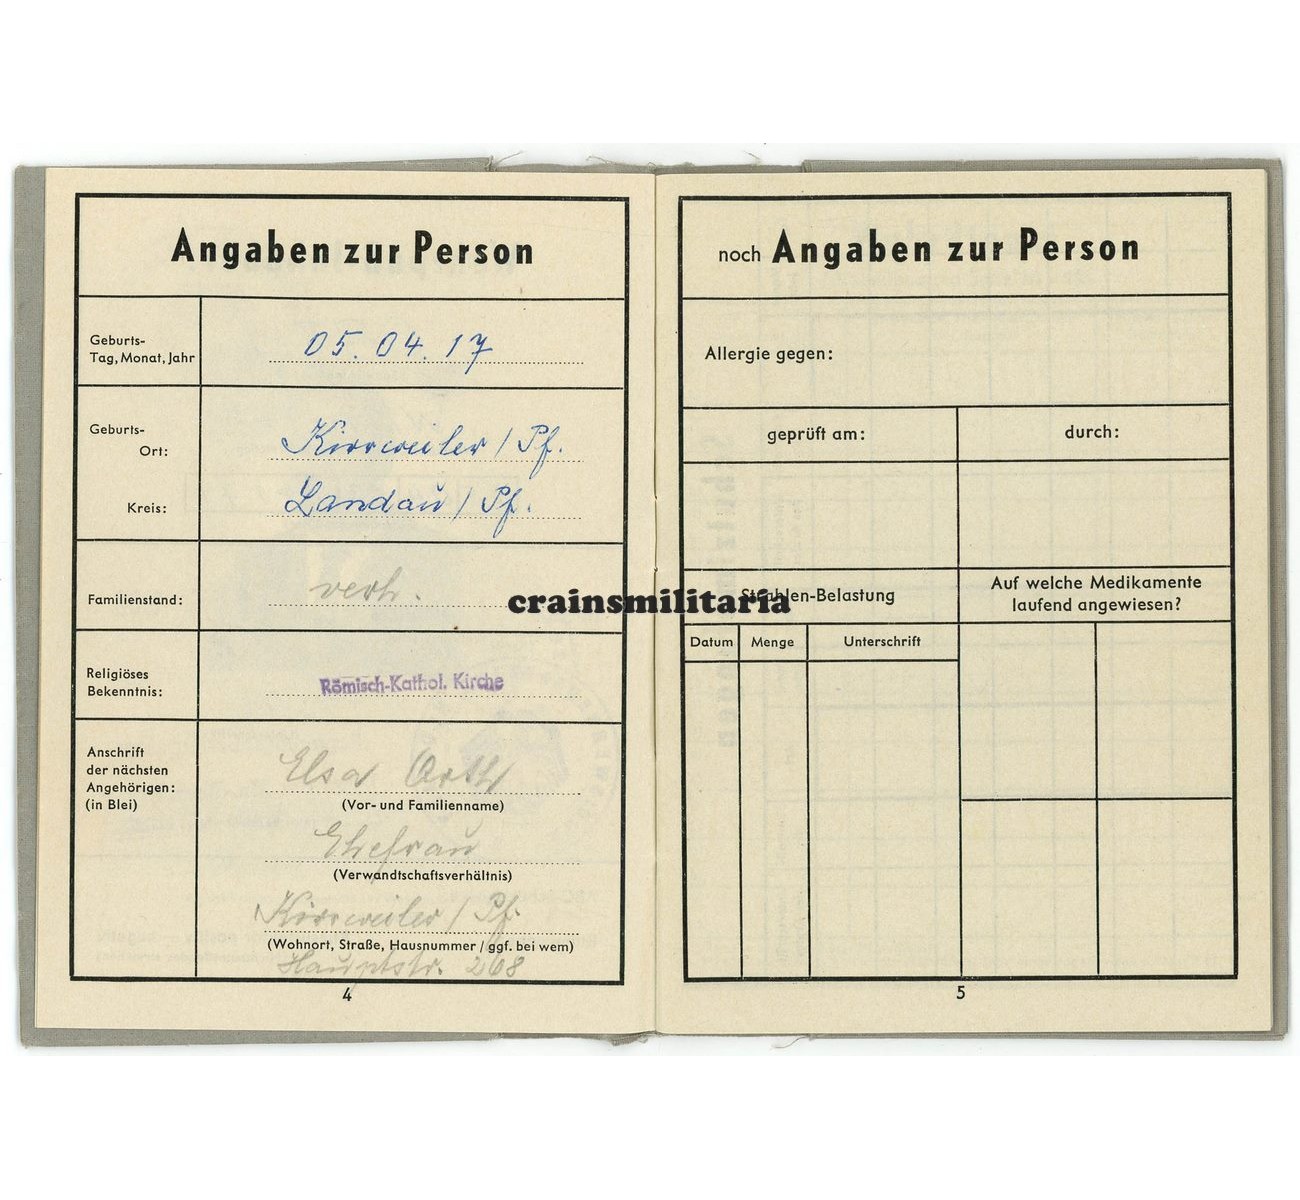 Angaben zur Person
Geburts-
Tag, Monat, Jahr
05.04.17
Geburts-
Ort:
Kirrweiler / Pf.
Kreis:
Landau / Pf.
Familienstand:
verh.
Religiöses
Bekenntnis:
Römisch-Kathol. Kirche
Anschrift
der nächsten
Angehörigen:
(in Blei)
Elsa Orth
(Vor- und Familienname)
Ehefrau
(Verwandtschaftsverhältnis)
Kirrweiler / Pf.
(Wohnort, Straße, Hausnummer / ggf. bei wem)
Hauptstr. 268
4
noch Angaben zur Person
Allergie gegen:
geprüft am:
durch:
Strahlen-Belastung
Auf welche Medikamente
laufend angewiesen?
Datum
Menge
Unterschrift
5
crainsmilitaria